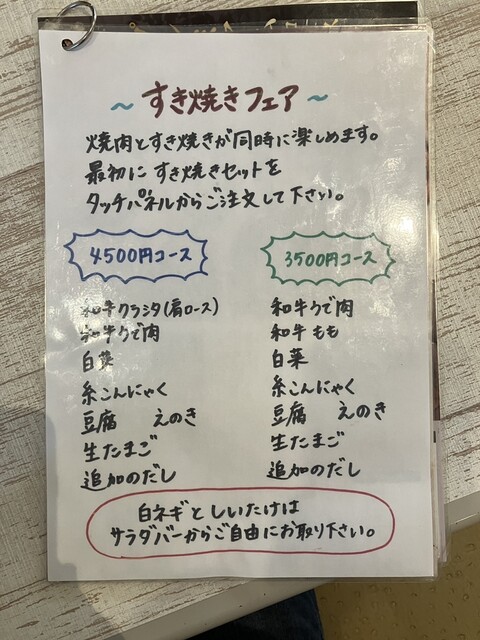 ~ すき焼きフェア ~
焼肉とすき焼きが同時に楽しめます。
最初にすき焼きセットを
タッチパネルからご注文して下さい。
4500円コース
和牛クラシタ(肩ロース)
和牛うで肉
白菜
糸こんにゃく
豆腐 えのき
生たまご
追加のだし
3500円コース
和牛うで肉
和牛もも
白菜
糸こんにゃく
豆腐 えのき
生たまご
追加のだし
白ネギとしいたけは
サラダバーからご自由にお取り下さい。